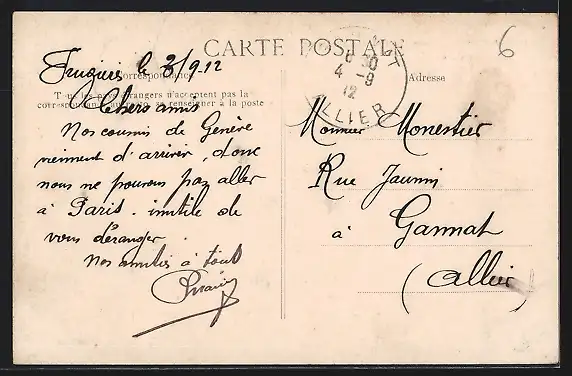 CARTE POSTALE
6
Correspondance
Adresse
le 3/9-12
Tous les pays étrangers n'acceptent pas la
correspondance au recto, se renseigner à la poste
Chers amis
Nos cousins de Genève
viennent d'arriver, donc
nous ne pouvons pas aller
à Paris. inutile de
vous déranger
Nos amitiés à tous
4 -9
12
ALLIER
Monsieur Monestier
Rue
à Gannat
(Allier)